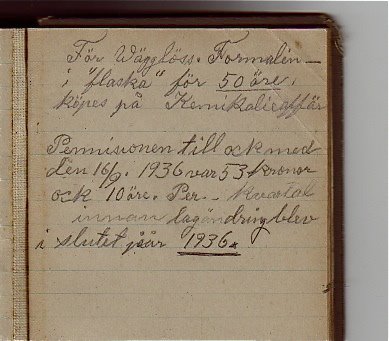 För Vägglöss. Formalin –
i "flaska" för 50 öre,
köpes på Kemikalieaffär
Pennisionen till ock med
den 16/9. 1936 var 53 kronor
ock 10 öre. Per. – kvartal
innan lagändring blev
i slutet på år 1936.